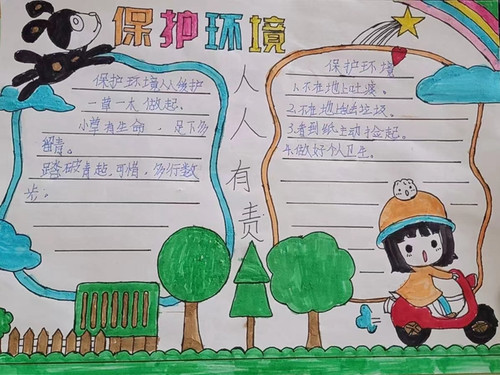 保护环境
人人有责
保护环境人人维护
一草一木做起。
小草有生命，足下多
留青。
踏破青毯可惜，多行数
步。
保护环境
1.不在地上吐痰。
2.不在地上丢垃圾。
3.看到纸主动捡起。
4.做好个人卫生。